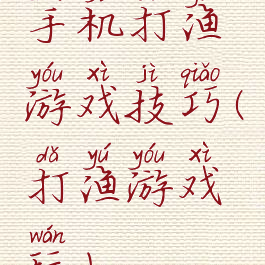 手机打渔
yóu xì jì qiǎo
游戏技巧(
dǎ yú yóu xì
打渔游戏
wán